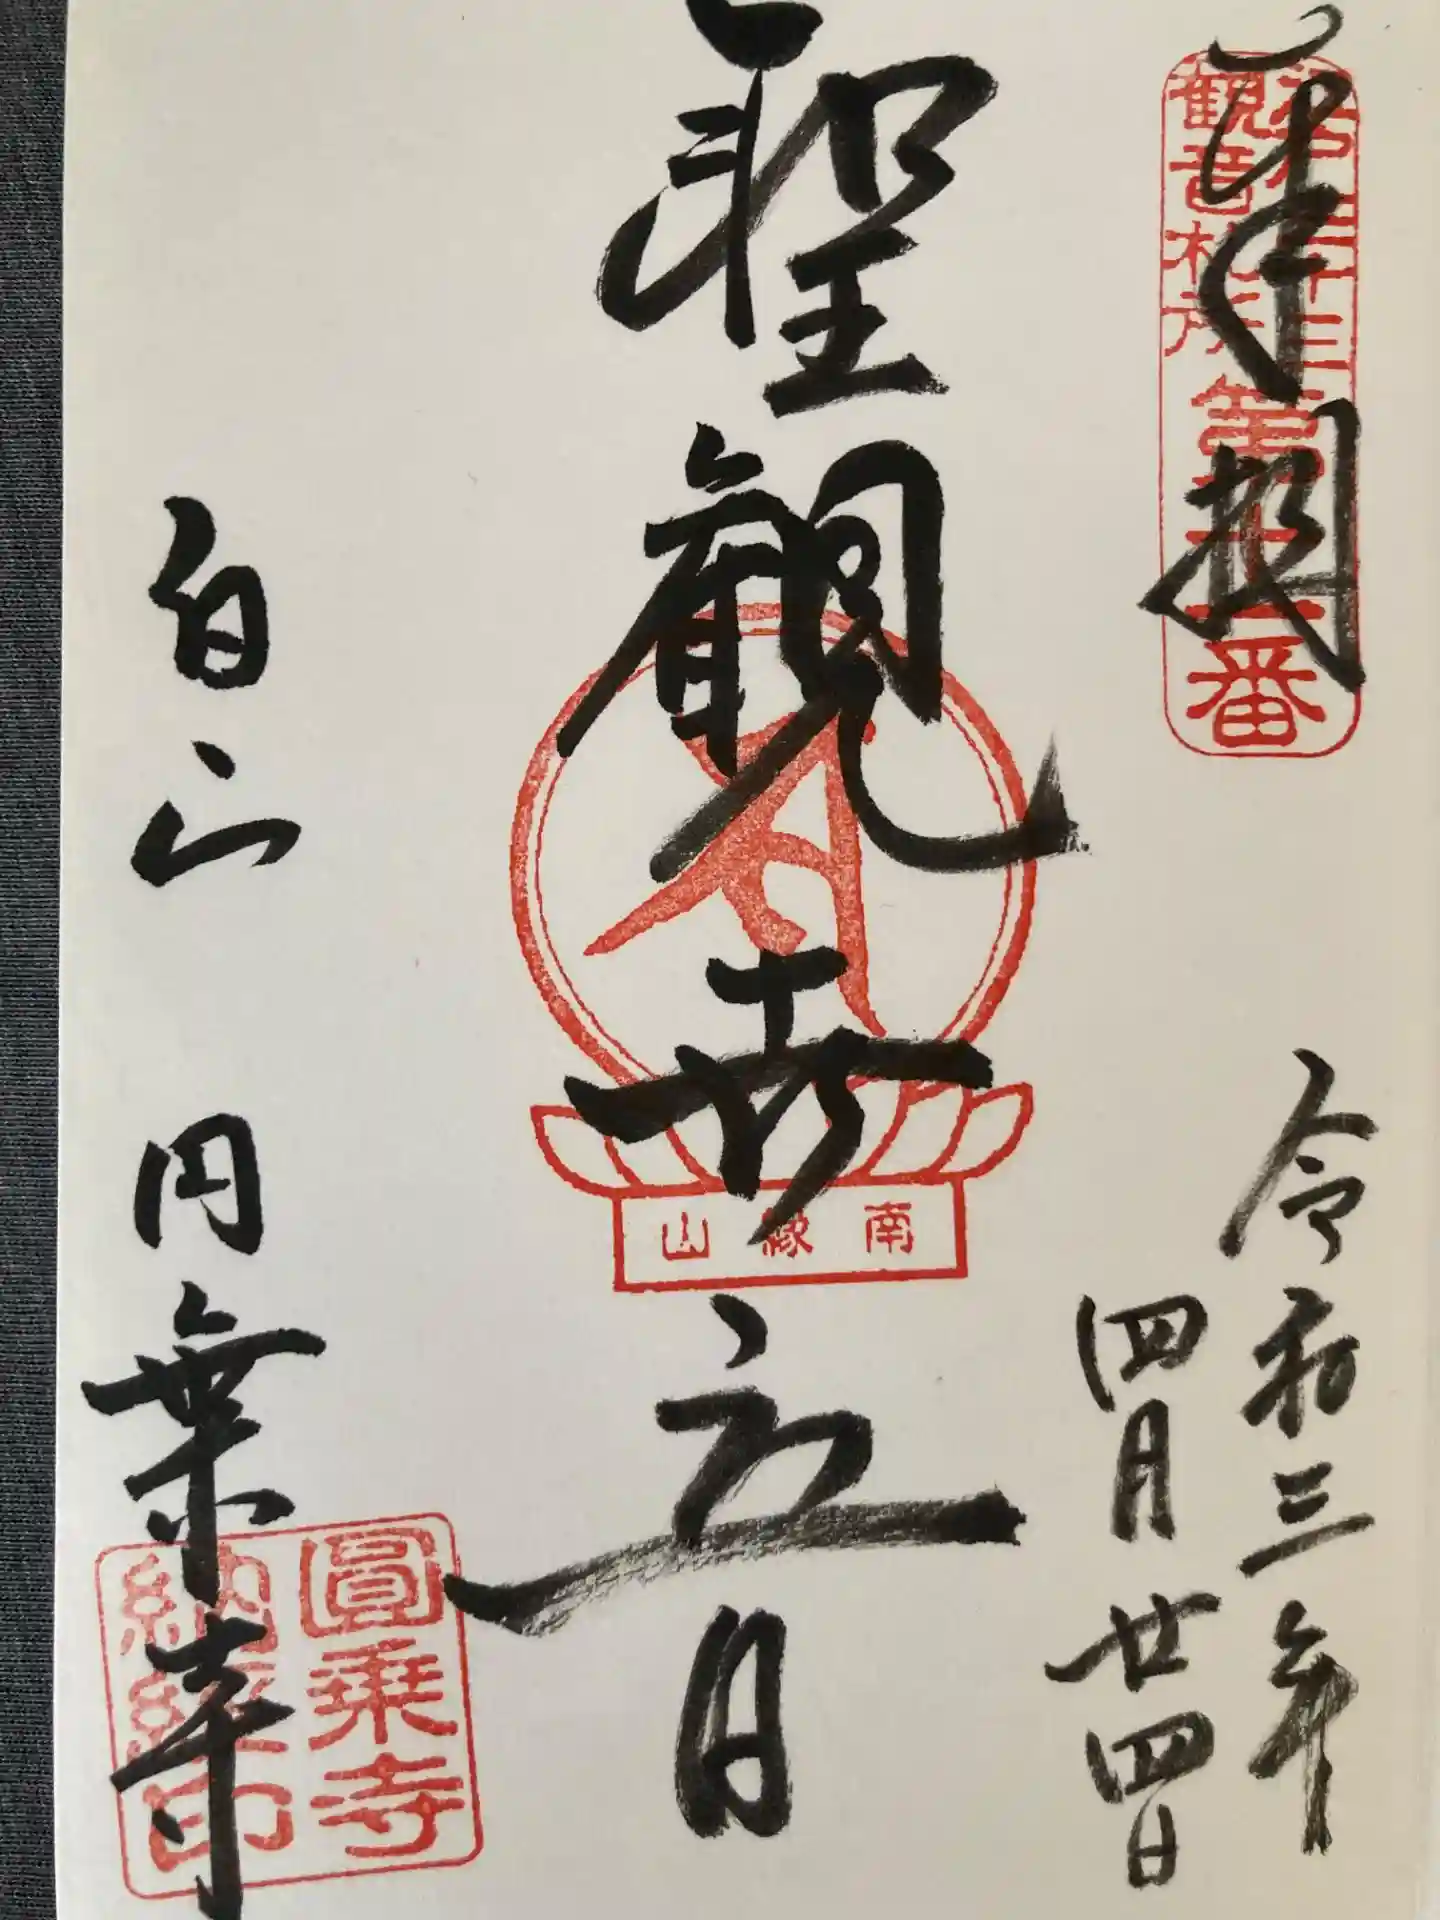 奉拝
昭和三十三
観音札所
第十一番
令和三年
四月廿四日
聖観世音
南縁山
白山 円乗寺
圓乗寺
納経印